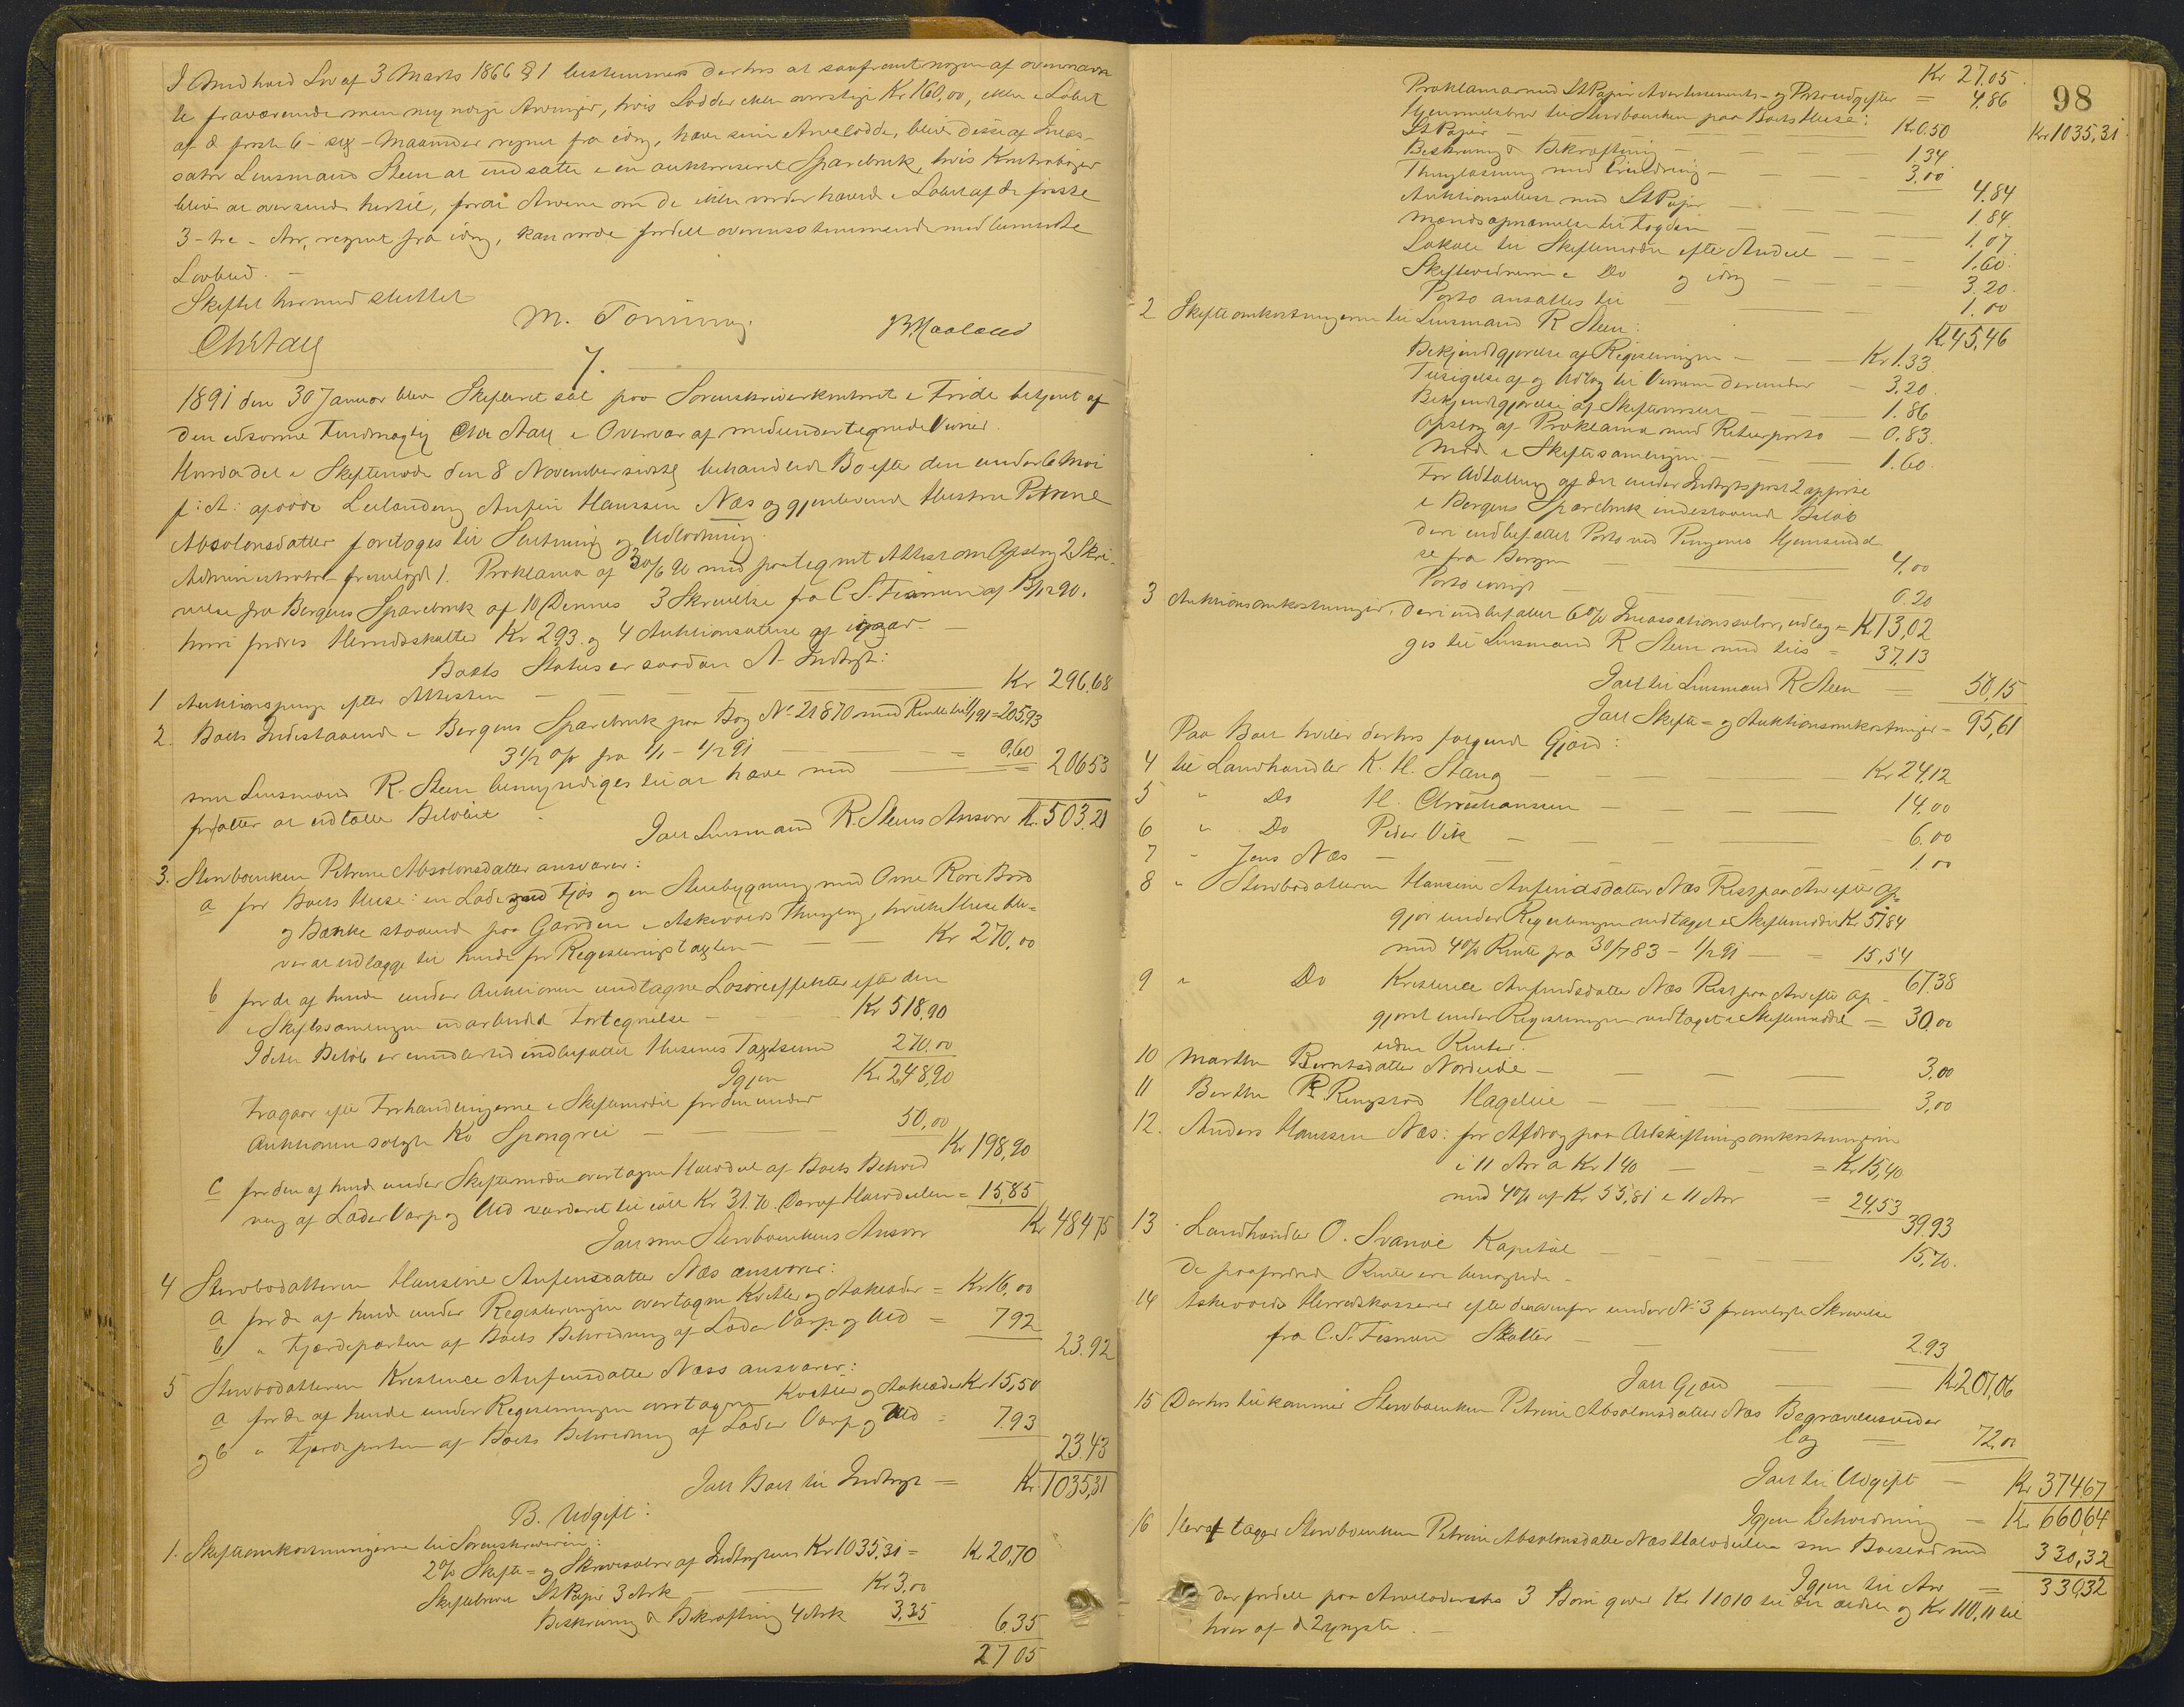 I Medhold Lov af 3 Marts 1866 § 1 bestemmes derhos at saafremt nogen af ovennævn
te fraværende men myndige Arvinger, hvis Lodder ikke overstige Kr 160,00, ikke i Løbet
af de første 6 - sex - Maaneder regnet fra idag, hæve sine Arvelodde, bliver disse af Incas-
sator Lensmand Steen at indsætte i en auktoriseret Sparebank, hvis Kontrabøger
bliver at oversende hertil, forat Arvene om de ikke vorder hævede i Løbet af de første
3 - tre - Aar, regnet fra idag, kan vorde fordelt overensstemmende med bemeldte
Lovbud. -
Skiftet hermed sluttet
Chr Aall M. Tonning. B Maaland
7.
1891 den 30 Januar blev Skifteret sat paa Sorenskriverkontoret i Förde betjent af
den edsorne Fuldmægtig Chr Aall i Overvær af medundertegnede Vidner.
Hvorda det i Skiftemøde den 8 November sidstl behandlede Bo efter den under 6 Mai
f: A: afdøde Leilænding Anfin Hanssen Næs og gjenlevende Hustru Petrine
Absolonsdatter foretoges til Slutning og Udlodning.
Administrator fremlagde 1. Proklama af 30/6 90 med paategnet Attest om Opslag 2 Skri-
velse fra Bergens Sparebank af 10 Dennes 3 Skrivelse fra C. S. af 12 90.
hvori fordres Herredsskatter Kr 2.93. og 4 Auktionsattest af igaar -
Boets Status er saadan A. Indtægt:
1 Auktionspenge efter Attesten - - - Kr 296,68
2. Boets Indestaaende i Bergens Sparebank paa Bog No 21870 med Renter til 1/1 91 = 205,93
3 1/2 % fra 1/1 - 1/2 91 - = 0,60
som Lensmand R. Steen bemyndiges til at hæve med - = 206,53
forpligter at udtælle Beløbet
Ialt Lensmand R. Steens Ansvar Kr. 503.21
3. Stervboenken Petrine Absolonsdatter ansvarer:
a for Boets Huse: en Lade med Fjøs og en Stuebygning med Ovne Rør Bord
og Bænke staaende paa Gaarden i Askevolds Thinglag, hvilke Huse bli-
ver at udlægge til hende for Registreringstaxten - - Kr 270,00
b for de af hende under Auktionen undtagne Løsøreeffekter efter den
i Skiftesamlingen udarbeidet Fortegnelse - Kr 518,90
I dette Beløb er imidlertid indbefattet Husenes Taxtsum 270.00
Igjen Kr 248,90
Fragaar efter Forhandlingerne i Skiftemødet for den under
Auktionen solgte Ko Spongrei - 50,00
Kr 198,90
c for den af hende under Skiftemødet overtagne Halvdel af Boets Behold
ning af Lader Varp og Ved vurderet til ialt Kr 31.70. Deraf Halvdelen = 15,85
Ialt som Stervboenkens Ansvar Kr 484,75
4 Stervbodatteren Hansine Anfinsdatter Næs ansvarer:
a for de af hende under Registreringen overtagne Kvitler og Aaklæder = Kr 16,00
b " Fjerdeparten af Boets Beholdning af Lader Varp og Ved = 7.92
23.92
5 Stervbodatteren Kristence Anfinsdatter Næss ansvarer:
a for de af hende under Registreringen overtagne Kvitler og Aaklæder Kr 15,50
og b " Fjerdeparten af Boets Beholdning af Lader Varp og Ved = 7.93
23.43
Ialt Boet til Indtægt = Kr. 1035,31
B. Udgift:
1. Skifteomkostningerne til Sorenskriveren:
2% Skifte- og Skriversalær af Indtægtens Kr 1035,31 = Kr 20,70
Skiftebrevet St Papir 3 Ark - Kr 3.00
Beskrivning & Bekræftning 4 Ark 3,35
6.35
27 05
98
Kr 27.05
Proklama med St Papir Avertissements- og Portoudgifter = 4,86
Hjemmelsbrev til Stervboenken paa Boets Huse: Kr 1035,31
St Papir - Kr 0.50
Beskrivning & Bekræftning - 1.34
Thinglæsning med Erindring - 3,00
4.84
Auktionsattest med St Papir - 1 84
Mændsopnævnelse til Fogden 1.07
Lokale til Skiftemøder efter Andeel - 1,60
Skiftevidnerne i Do og idag - 3.20
Porto ansættes til - 1.00
Kr 45,46
2 Skifteomkostningerne til Lensmand R Steen:
Bekjendtgjørelse af Registreringen - Kr 1.33
Tilsigelse af og Udlæg til Vidnerne derunder - 3.20
Bekjendtgjørelse af Skiftevæsen - 1.86
Opslag af Proklama med Returporto - 0.83
Møde i Skiftesamlingen - 1.60
For Udtælling af det under Indtægtspost 2 opførte
i Bergens Sparebank indestaaende Beløb
deri indbefattet Porto ved Pengenes Hjemsendel
se fra Bergen - 4,00
Porto øvrigt - 0.20
Kr 13,02
3 Auktionsomkostninger, deri indbefattet 6% Incassationssalær, udlæg-
ges til Lensmand R Steen med tils = 37,13
Ialt til Lensmand R Steen = 50,15
Ialt Skifte- og Auktionsomkostninger = 95,61
Paa Boet hviler derhos følgende Gjæld:
4 til Landhandler K. H. Stang - Kr 24,12
5 " Do H. Christiansen - 14.00
6 " Do Peder Vik - 6.00
7 " Jens Næs - 1.00
8 " Stervbodatteren Hansine Anfindsdatter Næs Rest paa Arv efter Op-
gjør under Registreringen vedtaget i Skiftemødet Kr. 51,84
med 4% Rente fra 30/7 83 - 1/2 91 - = 15,54
67.38
9 " Do Kristence Anfinsdatter Næs Rest paa Arv efter Op-
gjøret under Registreringen vedtaget i Skiftemødet = 30,00
uden Renter.
10 Marthe Berntsdatter Nordeide - 3,00
11 Berthe Hagelie - 3,00
12. Anders Hanssen Næs: for Afdrag paa Udskiftningsomkostningerne
i 11 Aar a Kr 1 40 - = Kr 15,40
med 4% af Kr 55,81 i 11 Aar = 24,53
39.93
13 Landhandler O. Svanöe Kapital - 15,70.
De paafordrede Renter ere benegtede -
14 Askevolds Herredskasserer efter den ovenfor under No 3 fremlagte Skrivelse
fra C. S. Skatter - 2.93
Ialt Gjæld - Kr 207,06
15 Derhos tilkommer Stervboenken Petrine Absolonsdatter Næs Begravelsesud-
læg = 72,00
Ialt til Udgift - Kr 374,67
Igjen Beholdning - Kr 660,64
16 Heraf tager Stervboenken Petrine Absolonsdatter Næs Halvdelen som Boeslod med 330,32
Igjen til Arv = 330,32
der fordelt paa Arveladerens 3 Børn giver Kr 110 10 til den ældste og Kr 110,11 til
hver af de 2 yngste. -